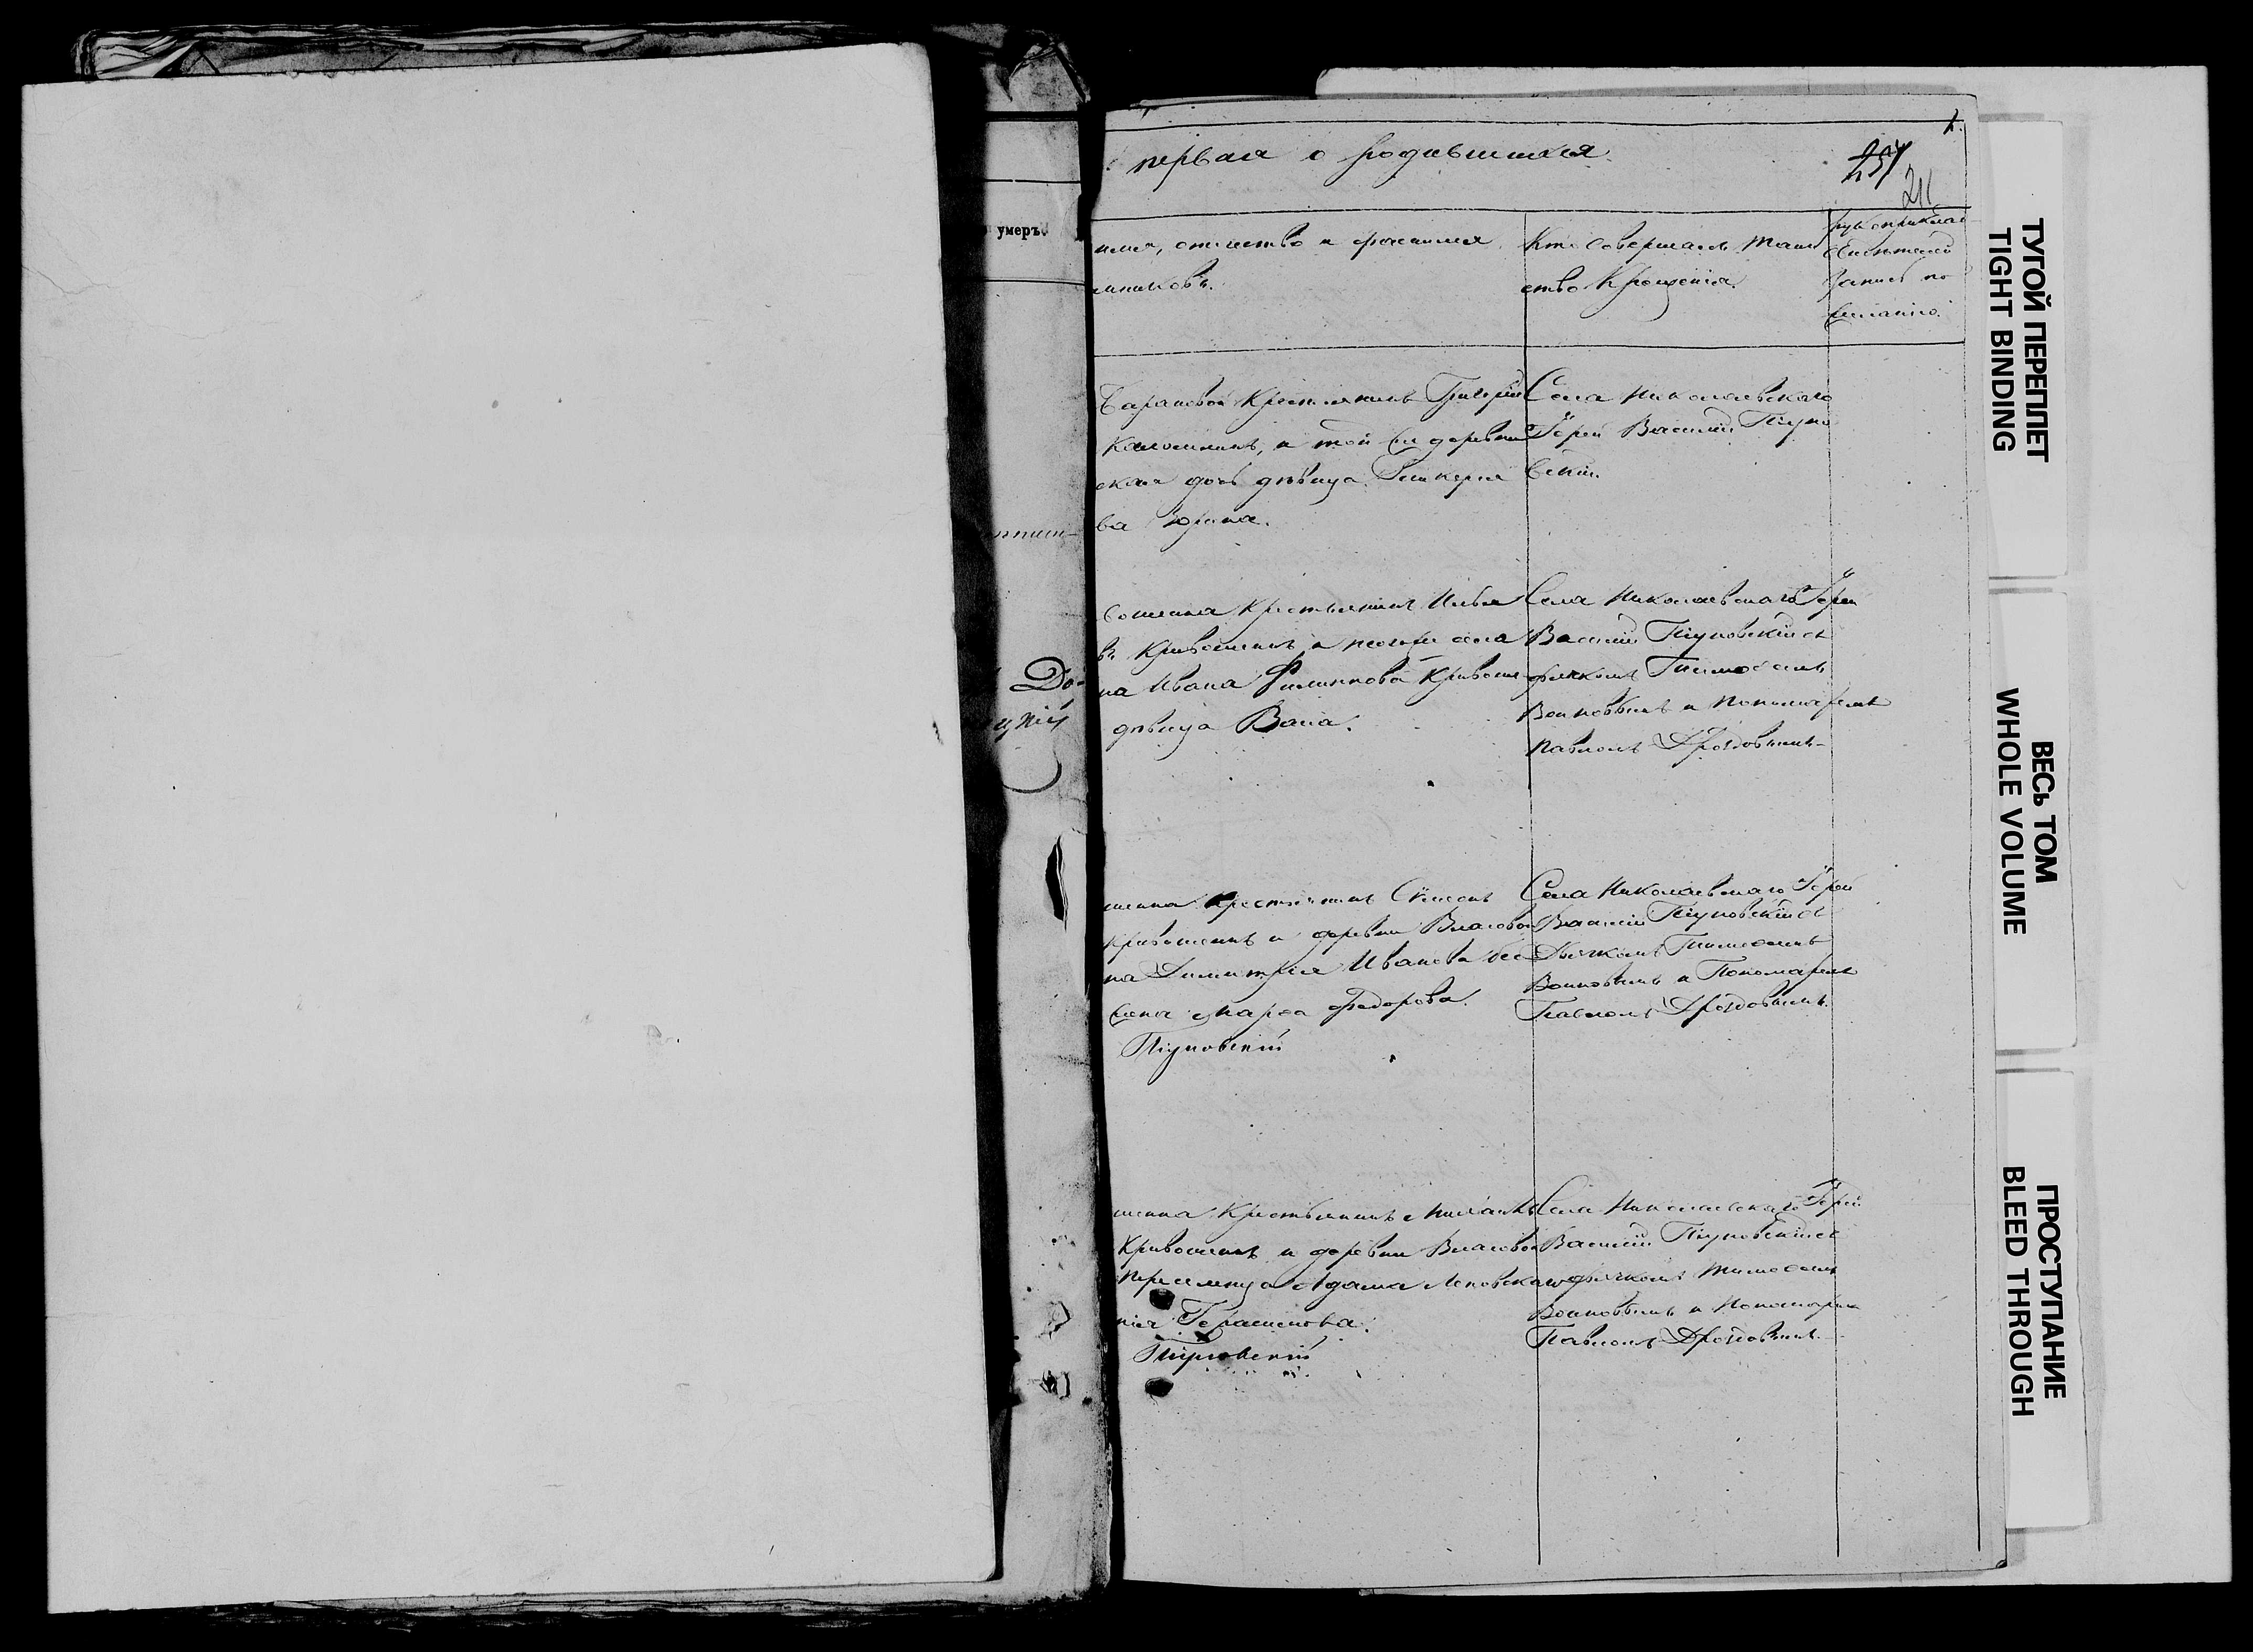 умеръ
До-
первая о родившихся.
257
211
1.
имя, отчество и фамилия
Кто совершалъ Таин
ство Крещенія.
Запись по
Барановой Крестьянинъ Григорій
и той же деревни
дочь дѣвица Гликерія
ва Юрина.
Села Николаевскаго
Іерей Василій Тіуно
вскій.
Крестьянинъ Илья
Кривошеинъ и
на Ивана Филиппова Кривоше
дѣвица Васса.
Села Николаевскаго Іерей
Василій Тіуновскій съ
дьячкомъ Тимоѳеемъ
Воиновымъ и Пономаремъ
Павломъ Дроздовымъ
шкина Крестьянинъ Симеонъ
Кривошеинъ и деревни Власовой
на Димитрія Иванова
жена Марѳа Федорова.
Тіуновскій
Села Николаевскаго Іерей
Василій Тіуновскій съ
Дьячкомъ Тимоѳеемъ
Воиновымъ и Пономаремъ
Павломъ Дроздовымъ.
шкина Крестьянинъ Михаилъ
Кривошеинъ и деревни Власовой
Адама
нія Герасимова.
Тіуновскій
Села Николаевскаго Іерей
Василій Тіуновскій съ
дьячкомъ Тимоѳеемъ
Воиновымъ и Пономаремъ
Павломъ Дроздовымъ
ТУГОЙ ПЕРЕПЛЕТ
TIGHT BINDING
ВЕСЬ ТОМ
WHOLE VOLUME
ПРОСТУПАНИЕ
BLEED THROUGH